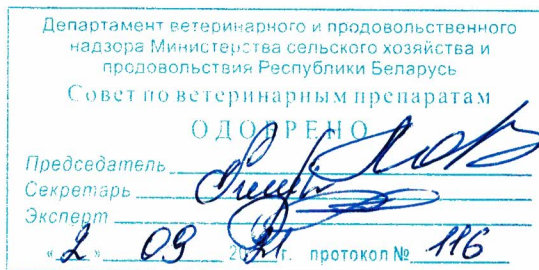 Департамент ветеринарного и продовольственного
надзора Министерства сельского хозяйства и
продовольствия Республики Беларусь
Совет по ветеринарным препаратам
ОДОБРЕНО
Председатель
Секретарь
Эксперт
«2» 09 2021г. протокол № 116